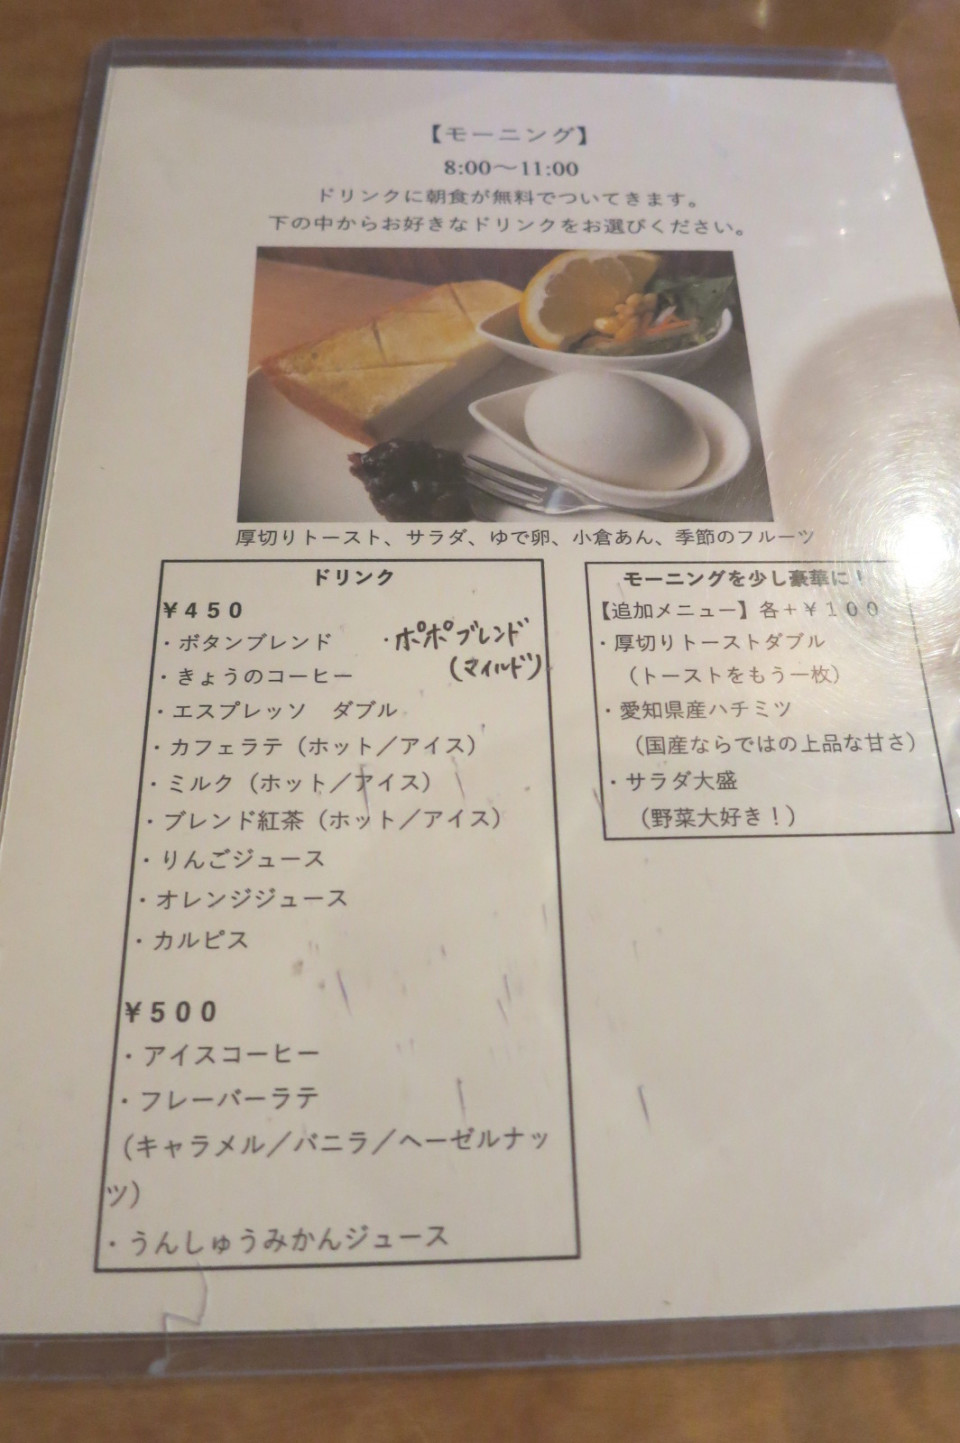 【モーニング】
8:00～11:00
ドリンクに朝食が無料でついてきます。
下の中からお好きなドリンクをお選びください。
厚切りトースト、サラダ、ゆで卵、小倉あん、季節のフルーツ
ドリンク
￥４５０
・ボタンブレンド　・ポポブレンド
（マイルド）
・きょうのコーヒー
・エスプレッソ　ダブル
・カフェラテ（ホット／アイス）
・ミルク（ホット／アイス）
・ブレンド紅茶（ホット／アイス）
・りんごジュース
・オレンジジュース
・カルピス
￥５００
・アイスコーヒー
・フレーバーラテ
（キャラメル／バニラ／ヘーゼルナッ
ツ）
・うんしゅうみかんジュース
モーニングを少し豪華に！
【追加メニュー】各＋￥１００
・厚切りトーストダブル
（トーストをもう一枚）
・愛知県産ハチミツ
（国産ならではの上品な甘さ）
・サラダ大盛
（野菜大好き！）